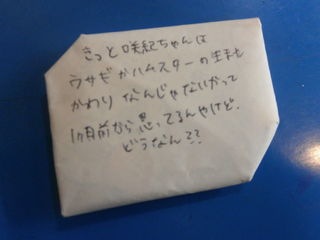 きっと咲紀ちゃんは
ウサギかハムスターの生まれ
かわりなんじゃないかって
1ヶ月前から思ってるんやけど、
どうなん??